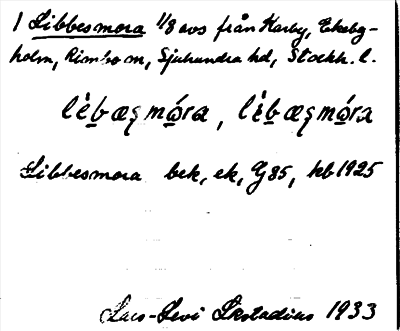 1 Libbesmora 1/8 avs från Karby, Ekeby-
holm, Rimbo sn, Sjuhundra hd, Stockh. l.
Libbesmora bek, ek, G 85, hb 1925
Lars-Levi Læstadius 1933